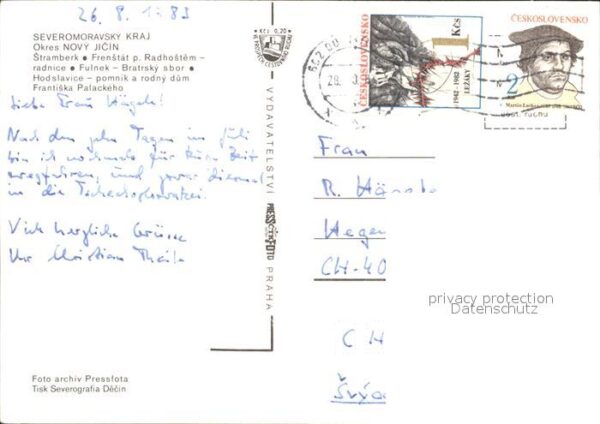 26. 8. 1983
SEVEROMORAVSKÝ KRAJ
Okres NOVÝ JIČÍN
Štramberk ● Frenštát p. Radhoštěm –
radnice ● Fulnek – Bratrský sbor ●
Hodslavice – pomník a rodný dům
Františka Palackého
Liebe Frau
Nach den zehn Tagen im Juli
bin ich nochmals für kurze Zeit
weggefahren, und zwar diesmal
in die Tschechoslowakei.
Viele herzliche Grüsse
Ihr Christian
Foto archiv Pressfoto
Tisk Severografia Děčín
Kčs 0,20
VYDAVATELSTVÍ PRESSFOTO PRAHA
ČESKOSLOVENSKO
1 Kčs
1942 - 1982
LEŽÁKY
ČESKOSLOVENSKO
2
Martin Luther
Frau
R.
CH-40
privacy protection
Datenschutz
CH